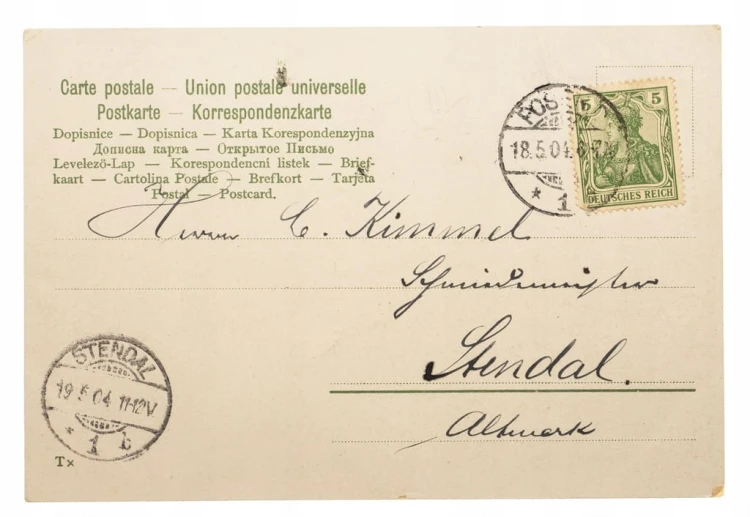 Carte postale — Union postale universelle
Postkarte — Korrespondenzkarte
Dopisnice — Dopisnica — Karta Korespondenzyjna
Дописна карта — Открытое Письмо
Levelező-Lap — Korespondencni listek — Brief-
kaart — Cartolina Postale — Brefkort — Tarjeta
Postal — Postcard.
POS
18.5.04.
* 1
5 5
DEUTSCHES REICH
Herrn C. Kimmel
Schmiedemeister
Stendal.
Altmark
STENDAL
19.5.04 11-12V
* 1 b
Tx